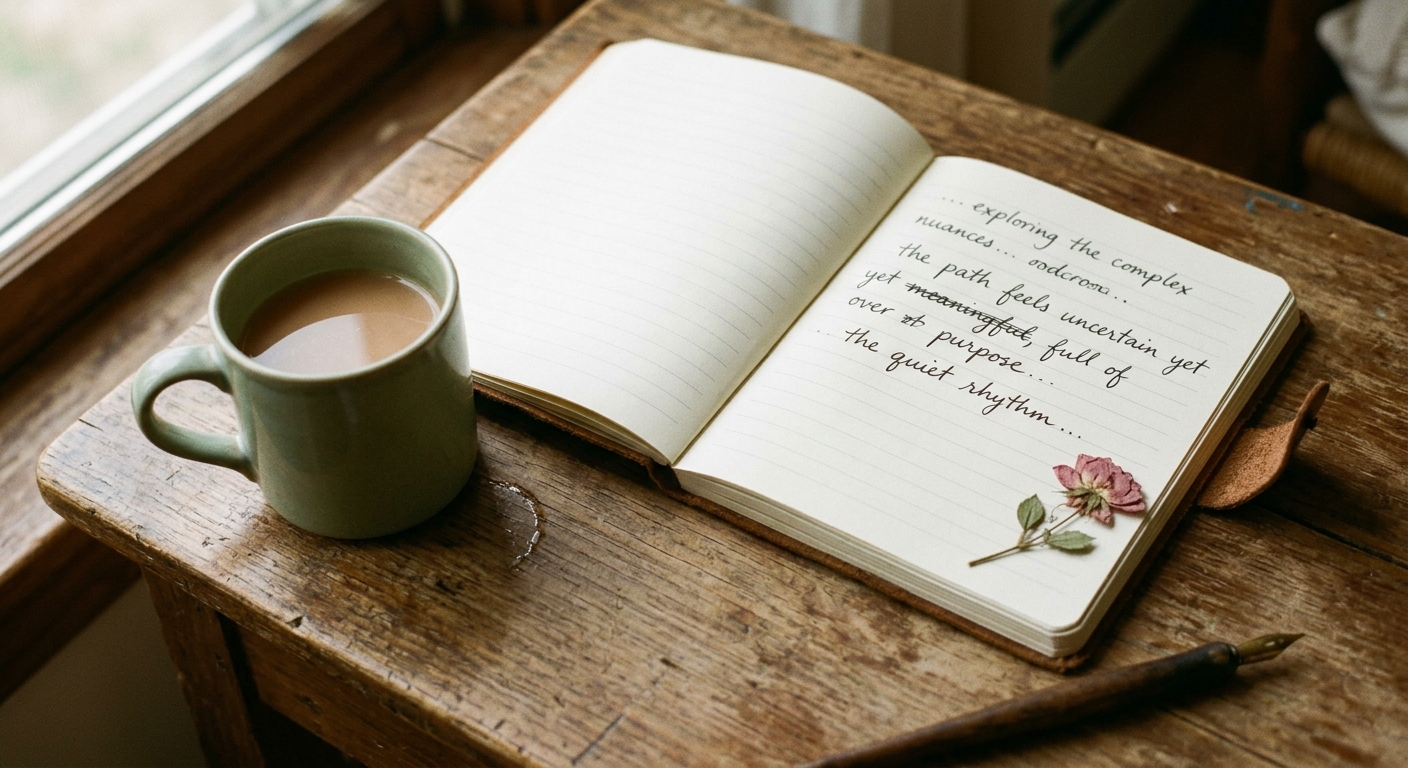 ... exploring the complex
nuances...
the path feels uncertain yet
yet meaningful, full of
over purpose...
... the quiet rhythm...